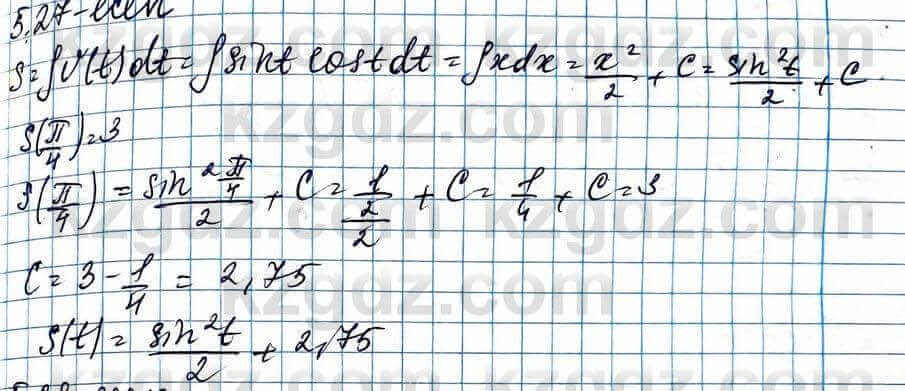 5.27-есеп
S = ∫V(t)dt = ∫sint cost dt = ∫xdx = x²/2 + C = sin²t/2 + C
S(π/4) = 3
S(π/4) = sin² π/4 / 2 + C = 1/2 / 2 + C = 1/4 + C = 3
C = 3 - 1/4 = 2,75
S(t) = sin²t/2 + 2,75
kzgdz.com